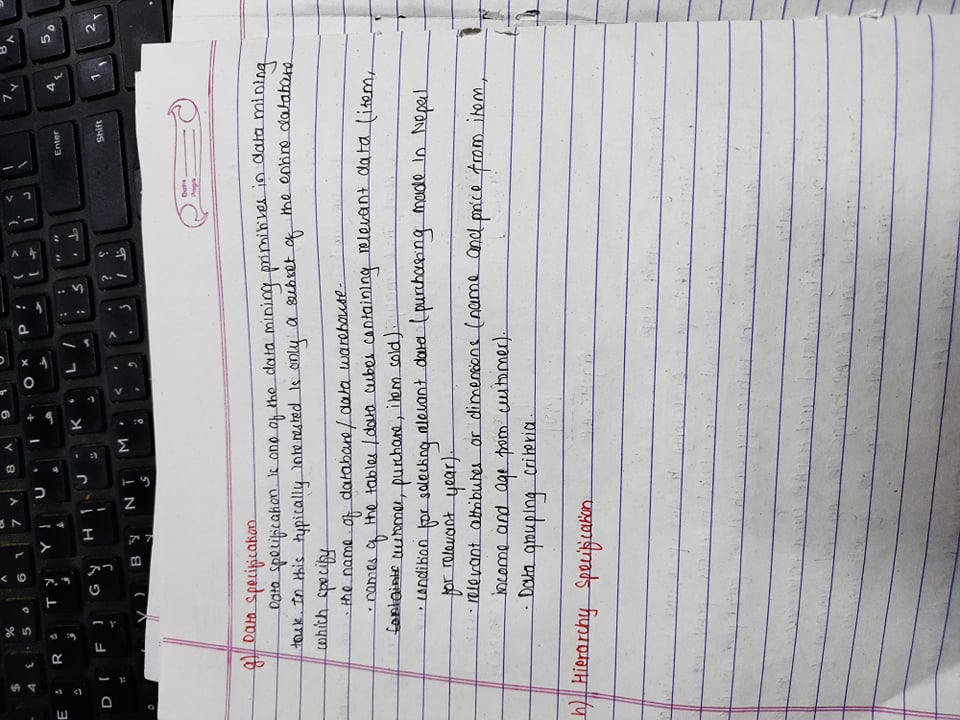 $ 4 ٤
% 5 ٥
^ 6 ٦
& 7 ٧
* 8 ٨
9
E
R
T
Y
U
I
O
P
Enter
7 ٧
4 ٤
5 ٥
D
F
G
H
J
K
L
Shift
1 ١
2 ٢
V
B
N
M
Date
Page
g) Data specification
Data specification is one of the data mining primitives in data mining
task. In this typically interested is only a subset of the entire database
which specify
· the name of database / data warehouse.
· names of the tables / data cubes containing relevant data (item,
customer, purchase, item sold).
· condition for selecting relevant data (purchasing made in Nepal
for relevant year).
· relevant attributes or dimensions (name and price from item,
income and age from customer).
· Data grouping criteria.
h) Hierarchy Specification